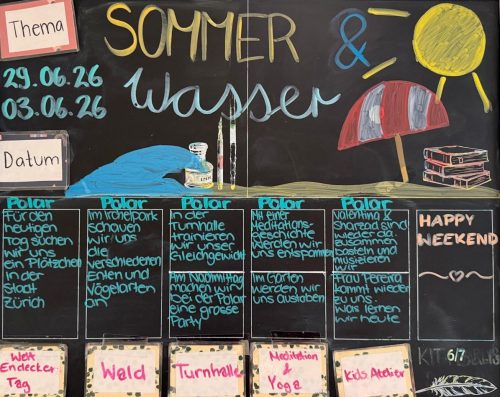 Thema
SOMMER &
Wasser
29.06.26
03.06.26
Datum
Polar
Für den
heutigen
Tag suchen
wir uns
ein Plätzchen
in der
Stadt
Zürich
Polar
Im Irchelpark
schauen
wir uns
die
verschiedenen
Enten und
Vogelarten
an
Polar
In der
Turnhalle
trainieren
wir unser
Gleichgewicht
Im Nachmittag
machen wir
bei der Polar
eine grosse
Party
Polar
Mit einer
Meditations-
geschichte
werden wir
uns entspannen
Im Garten
werden wir
uns austoben
Polar
Valentina &
sind
wieder da
zusammen
basteln und
musizieren
wir
Frau Pereira
kommt wieder
zu uns.
Was lernen
wir heute
HAPPY
WEEKEND
KIT 6/7
Welt
Endecker
Tag
Wald
Turnhalle
Meditation
&
Yoga
Kids Atelier